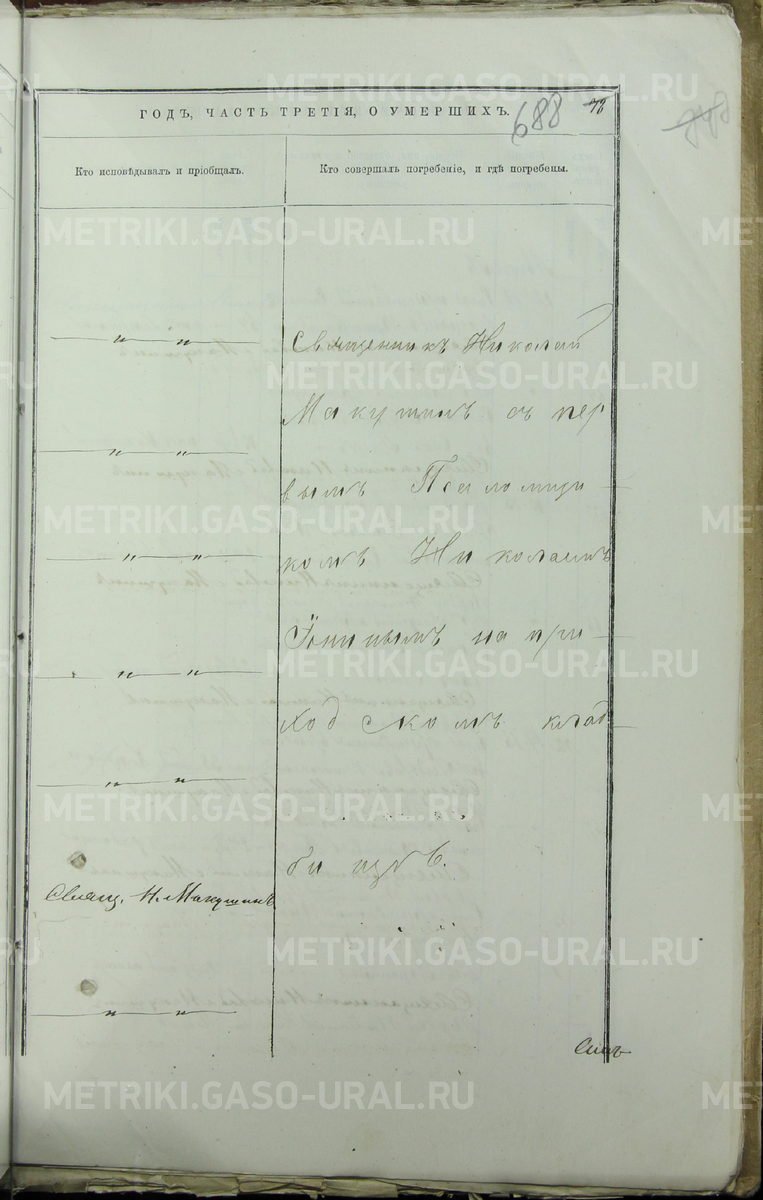 ГОДЪ, ЧАСТЬ ТРЕТІЯ, О УМЕРШИХЪ.
688
78
848
Кто исповѣдывалъ и пріобщалъ.
Кто совершалъ погребеніе, и гдѣ погребены.
METRIKI.GASO-URAL.RU
— „ — „ —
Священникъ Николай
Макушинъ съ пер
— „ — „ —
вымъ Псаломщи
— „ — „ —
комъ Николаемъ
на при
— „ — „ —
ходскомъ клад
— „ — „ —
бищѣ.
Свящ. Н. Макушинъ
— „ — „ —